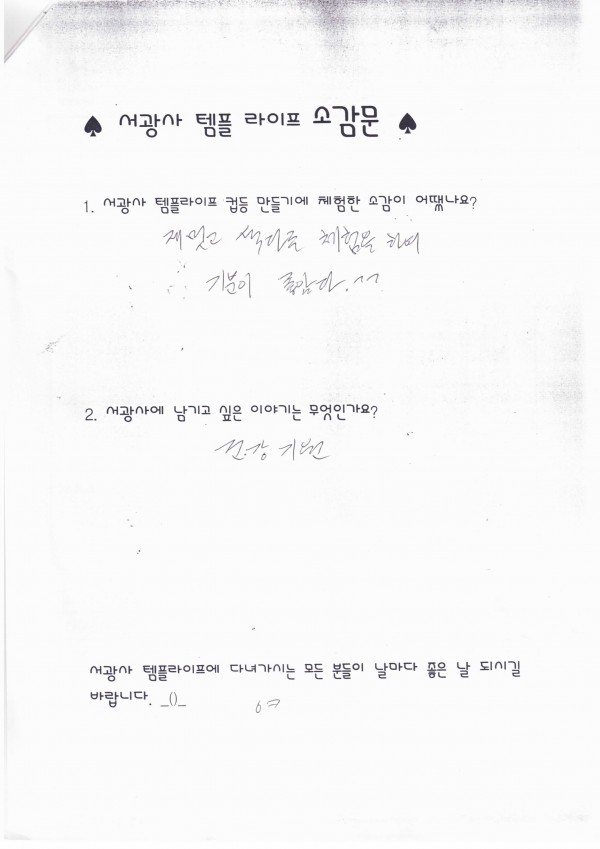 ♠ 서광사 템플 라이프 소감문 ♠
1. 서광사 템플라이프 컵등 만들기에 체험한 소감이 어땠나요?
재밋고 색다른 체험을 하여
기분이 좋았다. ^^
2. 서광사에 남기고 싶은 이야기는 무엇인가요?
건강 기원
서광사 템플라이프에 다녀가시는 모든 분들이 날마다 좋은 날 되시길
바랍니다. _()_